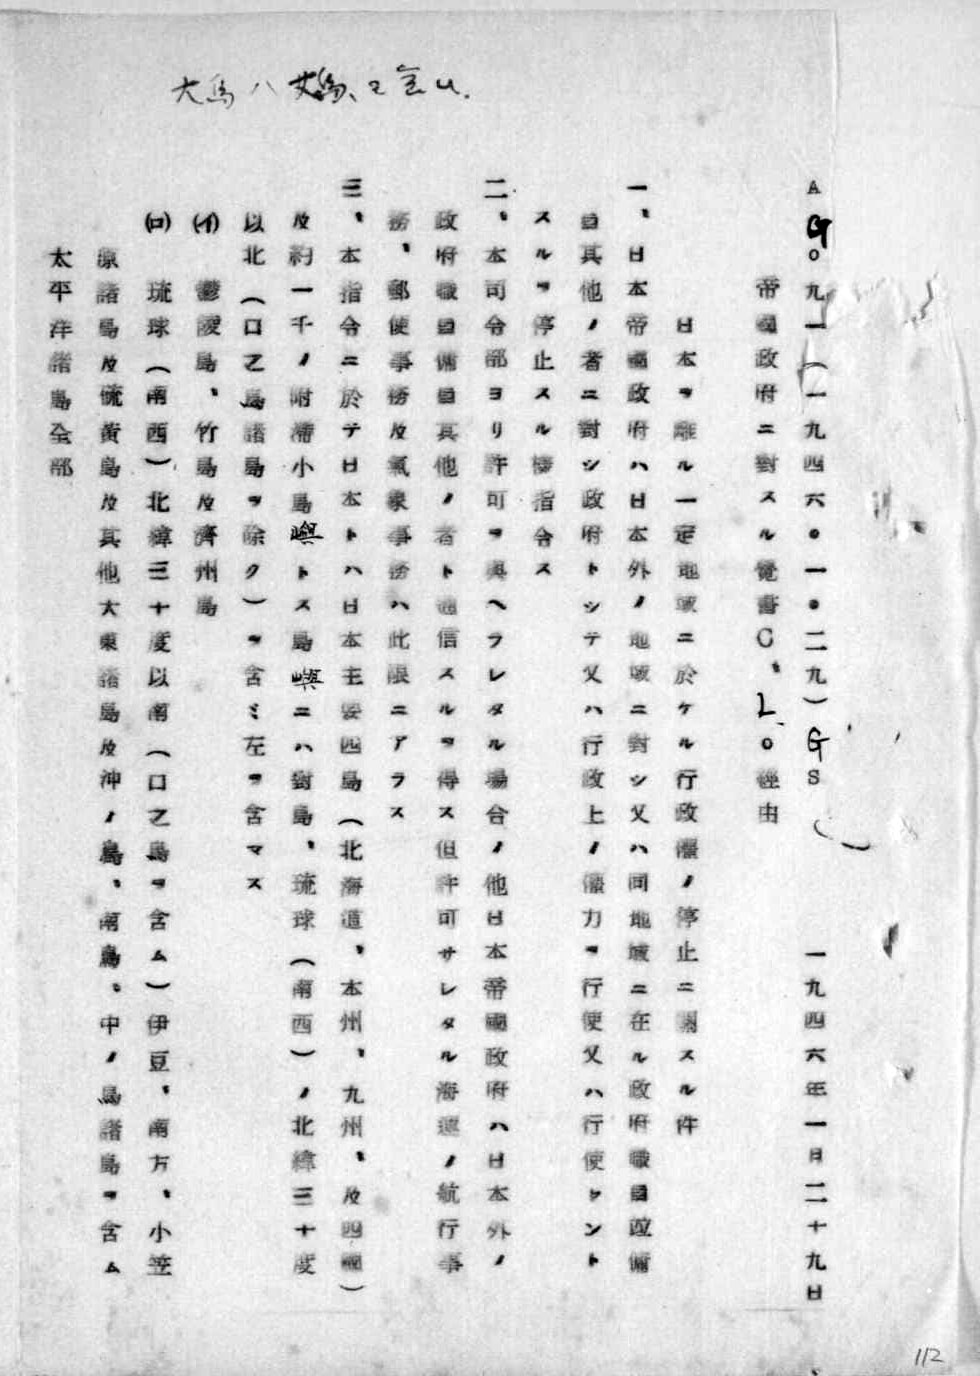 AG〇九一(一九四六・一・二九)GS 一九四六年一月二十九日
帝國政府ニ對スル覺書C、L〇經由
日本ヲ離ル一定地域ニ於ケル行政權ノ停止ニ關スル件
一、日本帝國政府ハ日本外ノ地域ニ對シ又ハ同地域ニ在ル政府職員竝傭
員其他ノ者ニ對シ政府トシテ又ハ行政上ノ權力ヲ行使又ハ行使セント
スルヲ停止スル樣指令ス
二、本司令部ヨリ許可ヲ與ヘラレタル場合ノ他日本帝國政府ハ日本外ノ
政府職員傭員其他ノ者ト通信スルヲ得ス但許可サレタル海運ノ航行事
務、郵便事務及氣象事務ハ此限ニアラス
三、本指令ニ於テ日本トハ日本主要四島(北海道、本州、九州、及四國)
及約一千ノ附帶小島嶼トス島嶼ニハ對島、琉球(南西)ノ北緯三十度
以北(口之島諸島ヲ除ク)ヲ含ミ左ヲ含マス
(イ) 鬱陵島、竹島及濟州島
(ロ) 琉球(南西)北緯三十度以南(口之島ヲ含ム)伊豆、南方、小笠
原諸島及硫黃島及其他大東諸島及沖ノ鳥島、南鳥島、中ノ鳥諸島ヲ含ム
太平洋諸島全部
112